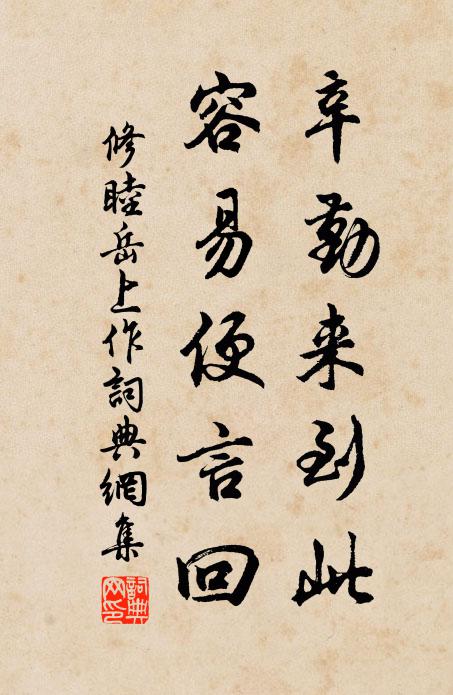 辛勤来到此
容易便言回
修睦岳上作詞典網集
詞典网印